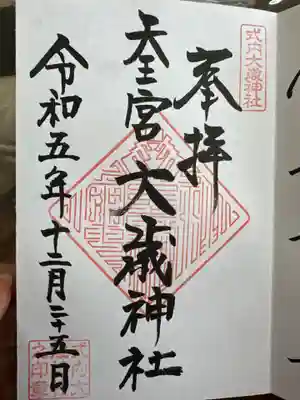 式内大歳神社
奉拝
天王宮大歳神社
令和五年十二月二十五日